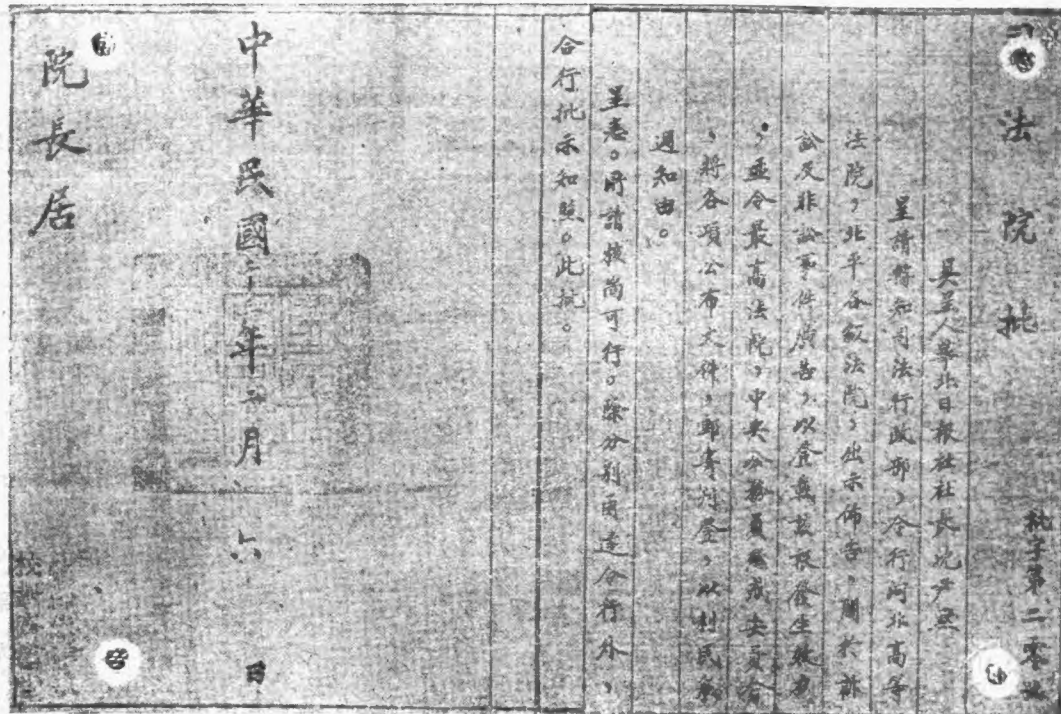 司法院批
批字第二零號
具呈人華北日報社社長沈尹默
呈請轉知司法行政部,令行河北高等
法院,北平各級法院,出示佈告,關於訴
訟及非訟事件廣告,以登載該報發生效力
,並令最高法院,中央公務員懲戒委員會
,將各項公布文件,郵寄刊登,以利民衆
週知由。
呈悉。所請核尚可行。除分別函達令行外,
合行批示知照。此批。
中華民國二十二年二月六日
院長居
校